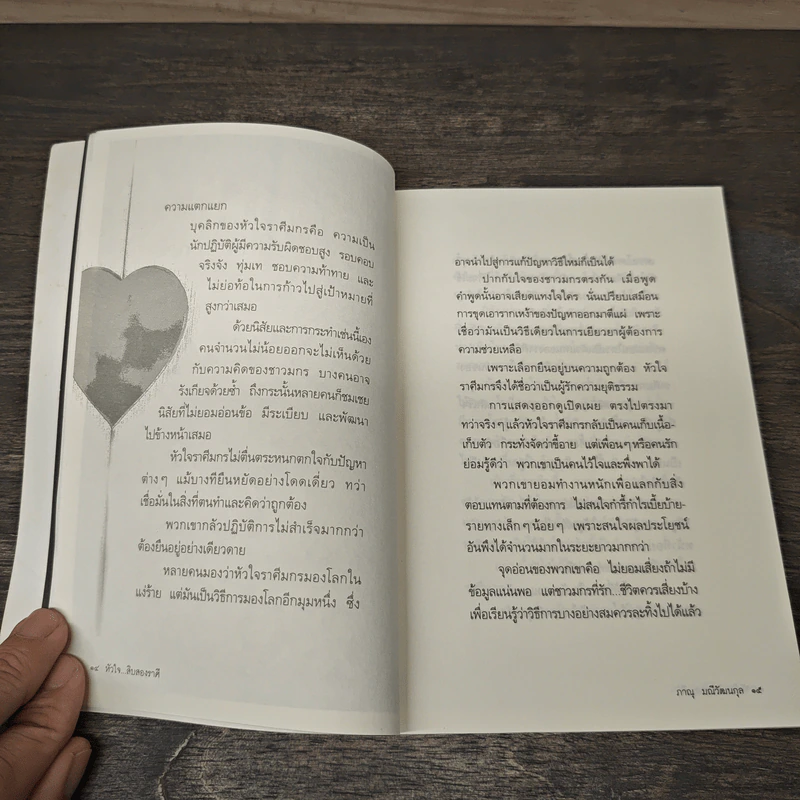 ความแตกแยก
บุคลิกของหัวใจราศีมกรคือ ความเป็น
นักปฏิบัติผู้มีความรับผิดชอบสูง รอบคอบ
จริงจัง ทุ่มเท ชอบความท้าทาย และ
ไม่ย่อท้อในการก้าวไปสู่เป้าหมายที่
สูงกว่าเสมอ
ด้วยนิสัยและการกระทำเช่นนี้เอง
คนจำนวนไม่น้อยออกจะไม่เห็นด้วย
กับความคิดของชาวมกร บางคนอาจ
รังเกียจด้วยซ้ำ ถึงกระนั้นหลายคนก็ชมเชย
นิสัยที่ไม่ยอมอ่อนข้อ มีระเบียบ และพัฒนา
ไปข้างหน้าเสมอ
หัวใจราศีมกรไม่ตื่นตระหนกตกใจกับปัญหา
ต่างๆ แม้บางทียืนหยัดอย่างโดดเดี่ยว ทว่า
เชื่อมั่นในสิ่งที่ตนทำและคิดว่าถูกต้อง
พวกเขากลัวปฏิบัติการไม่สำเร็จมากกว่า
ต้องยืนอยู่อย่างเดียวดาย
หลายคนมองว่าหัวใจราศีมกรมองโลกใน
แง่ร้าย แต่มันเป็นวิธีการมองโลกอีกมุมหนึ่ง ซึ่ง
๑๔ หัวใจ...สิบสองราศี
อาจนำไปสู่การแก้ปัญหาวิธีใหม่ก็เป็นได้
ปากกับใจของชาวมกรตรงกัน เมื่อพูด
คำพูดนั้นอาจเสียดแทงใจใคร นั่นเปรียบเสมือน
การขุดเอารากเหง้าของปัญหาออกมาตีแผ่ เพราะ
เชื่อว่ามันเป็นวิธีเดียวในการเยียวยาผู้ต้องการ
ความช่วยเหลือ
เพราะเลือกยืนอยู่บนความถูกต้อง หัวใจ
ราศีมกรจึงได้ชื่อว่าเป็นผู้รักความยุติธรรม
การแสดงออกดูเปิดเผย ตรงไปตรงมา
ทว่าจริงๆ แล้วหัวใจราศีมกรกลับเป็นคนเก็บเนื้อ-
เก็บตัว กระทั่งจัดว่าขี้อาย แต่เพื่อนๆ หรือคนรัก
ย่อมรู้ดีว่า พวกเขาเป็นคนไว้ใจและพึ่งพาได้
พวกเขายอมทำงานหนักเพื่อแลกกับสิ่ง
ตอบแทนตามที่ต้องการ ไม่สนใจกำรี้กำไรเบี้ยบ้าย-
รายทางเล็กๆ น้อยๆ เพราะสนใจผลประโยชน์
อันพึงได้จำนวนมากในระยะยาวมากกว่า
จุดอ่อนของพวกเขาคือ ไม่ยอมเสี่ยงถ้าไม่มี
ข้อมูลแน่นพอ แต่ชาวมกรที่รัก...ชีวิตควรเสี่ยงบ้าง
เพื่อเรียนรู้ว่าวิธีการบางอย่างสมควรละทิ้งไปได้แล้ว
ภาณุ มณีวัฒนกุล ๑๕